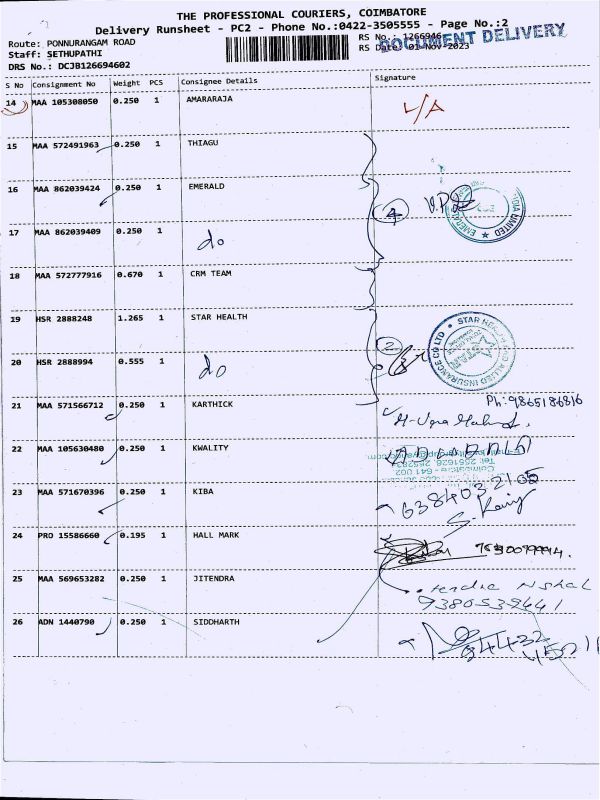 THE PROFESSIONAL COURIERS, COIMBATORE
Delivery Runsheet - PC2 - Phone No.:0422-3505555 - Page No.:2
Route: PONNURANGAM ROAD
RS No.: 1266946
DOCUMENT DELIVERY
Staff: SETHUPATHI
RS Date: 01-Nov-2023
DRS No.: DCJB126694602
S No Consignment No Weight PCS Consignee Details Signature
14 MAA 105308050 0.250 1 AMARARAJA L/A
15 MAA 572491963 0.250 1 THIAGU
16 MAA 862039424 0.250 1 EMERALD
4
17 MAA 862039409 0.250 1 do
18 MAA 572777916 0.670 1 CRM TEAM
19 HSR 2888248 1.265 1 STAR HEALTH
2
STAR HEALTH AND ALLIED INSURANCE CO LTD
20 HSR 2888994 0.555 1 do
21 MAA 571566712 0.250 1 KARTHICK
Ph: 9865186816
22 MAA 105630480 0.250 1 KWALITY
23 MAA 571670396 0.250 1 KIBA
24 PRO 15586660 0.195 1 HALL MARK
25 MAA 569653282 0.250 1 JITENDRA
26 ADN 1440790 0.250 1 SIDDHARTH